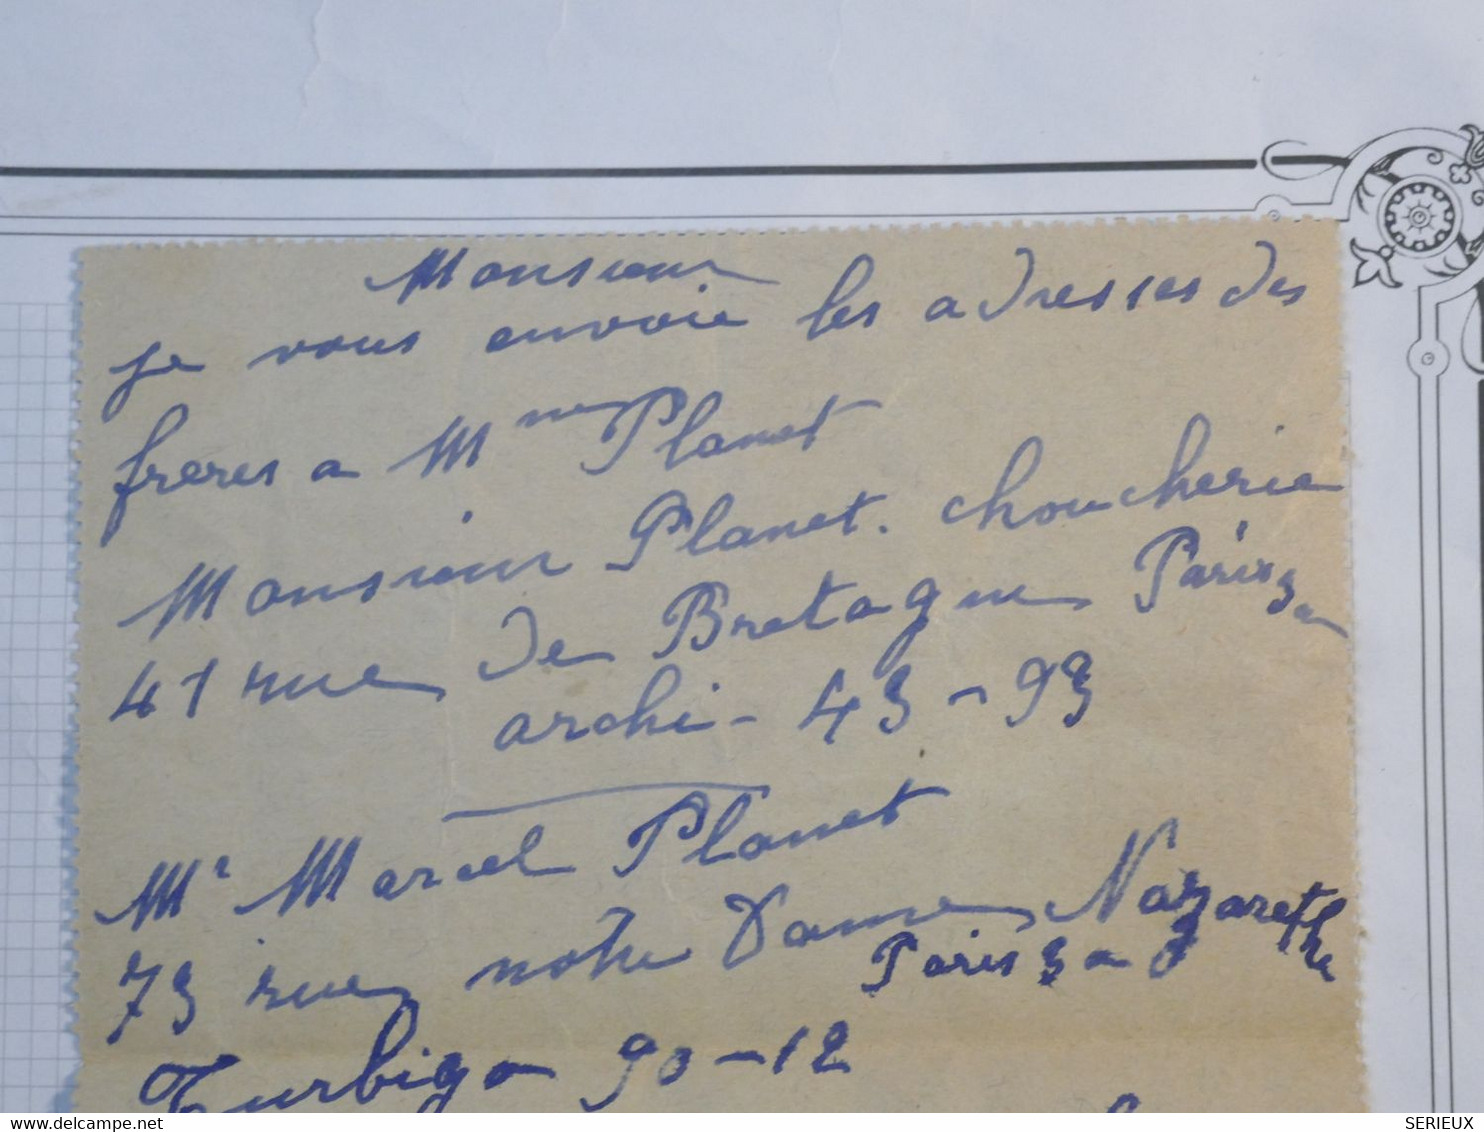 Monsieur
je vous envoie les adresses des
freres a Mme Planet
Monsieur Planet. choucherie
41 rue de Bretagne Paris 3e
archi - 43 - 93
Mr Marcel Planet
73 rue notre Dame Nazarethe
Paris 3e
Turbigo 90 - 12
delcampe.net
SERIEUX